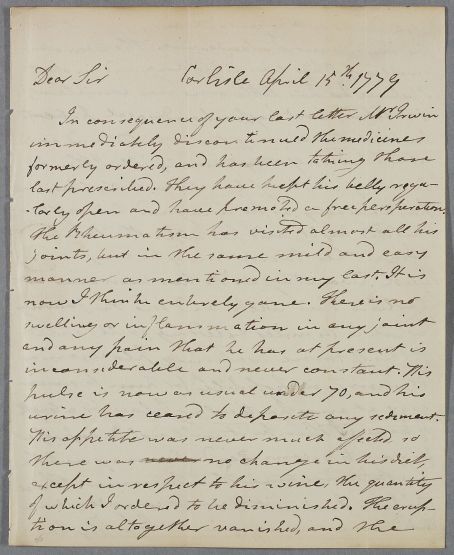 Dear Sir Carlisle April 15th. 1779
In consequence of your last letter Mr Irwin
immediately discontinued the medicines
formerly ordered, and has been taking those
last prescribed. They have kept his belly regu-
-larly open and have promoted a free perspiration.
The Rheumatism has visited almost all his
joints, but in the same mild and easy
manner as mentioned in my last. It is
now I think entirely gone. There is no
swelling or inflammation in any joint
and any pain that he has at present is
inconsiderable and never constant. His
pulse is now as usual under 70, and his
urine has ceased to deposite any sediment.
His appetite was never much affected so
there was never no change in his diet,
except in respect to his wine, the quantity
of which I ordered to be diminished. The erup-
tion is altogether vanished, and the